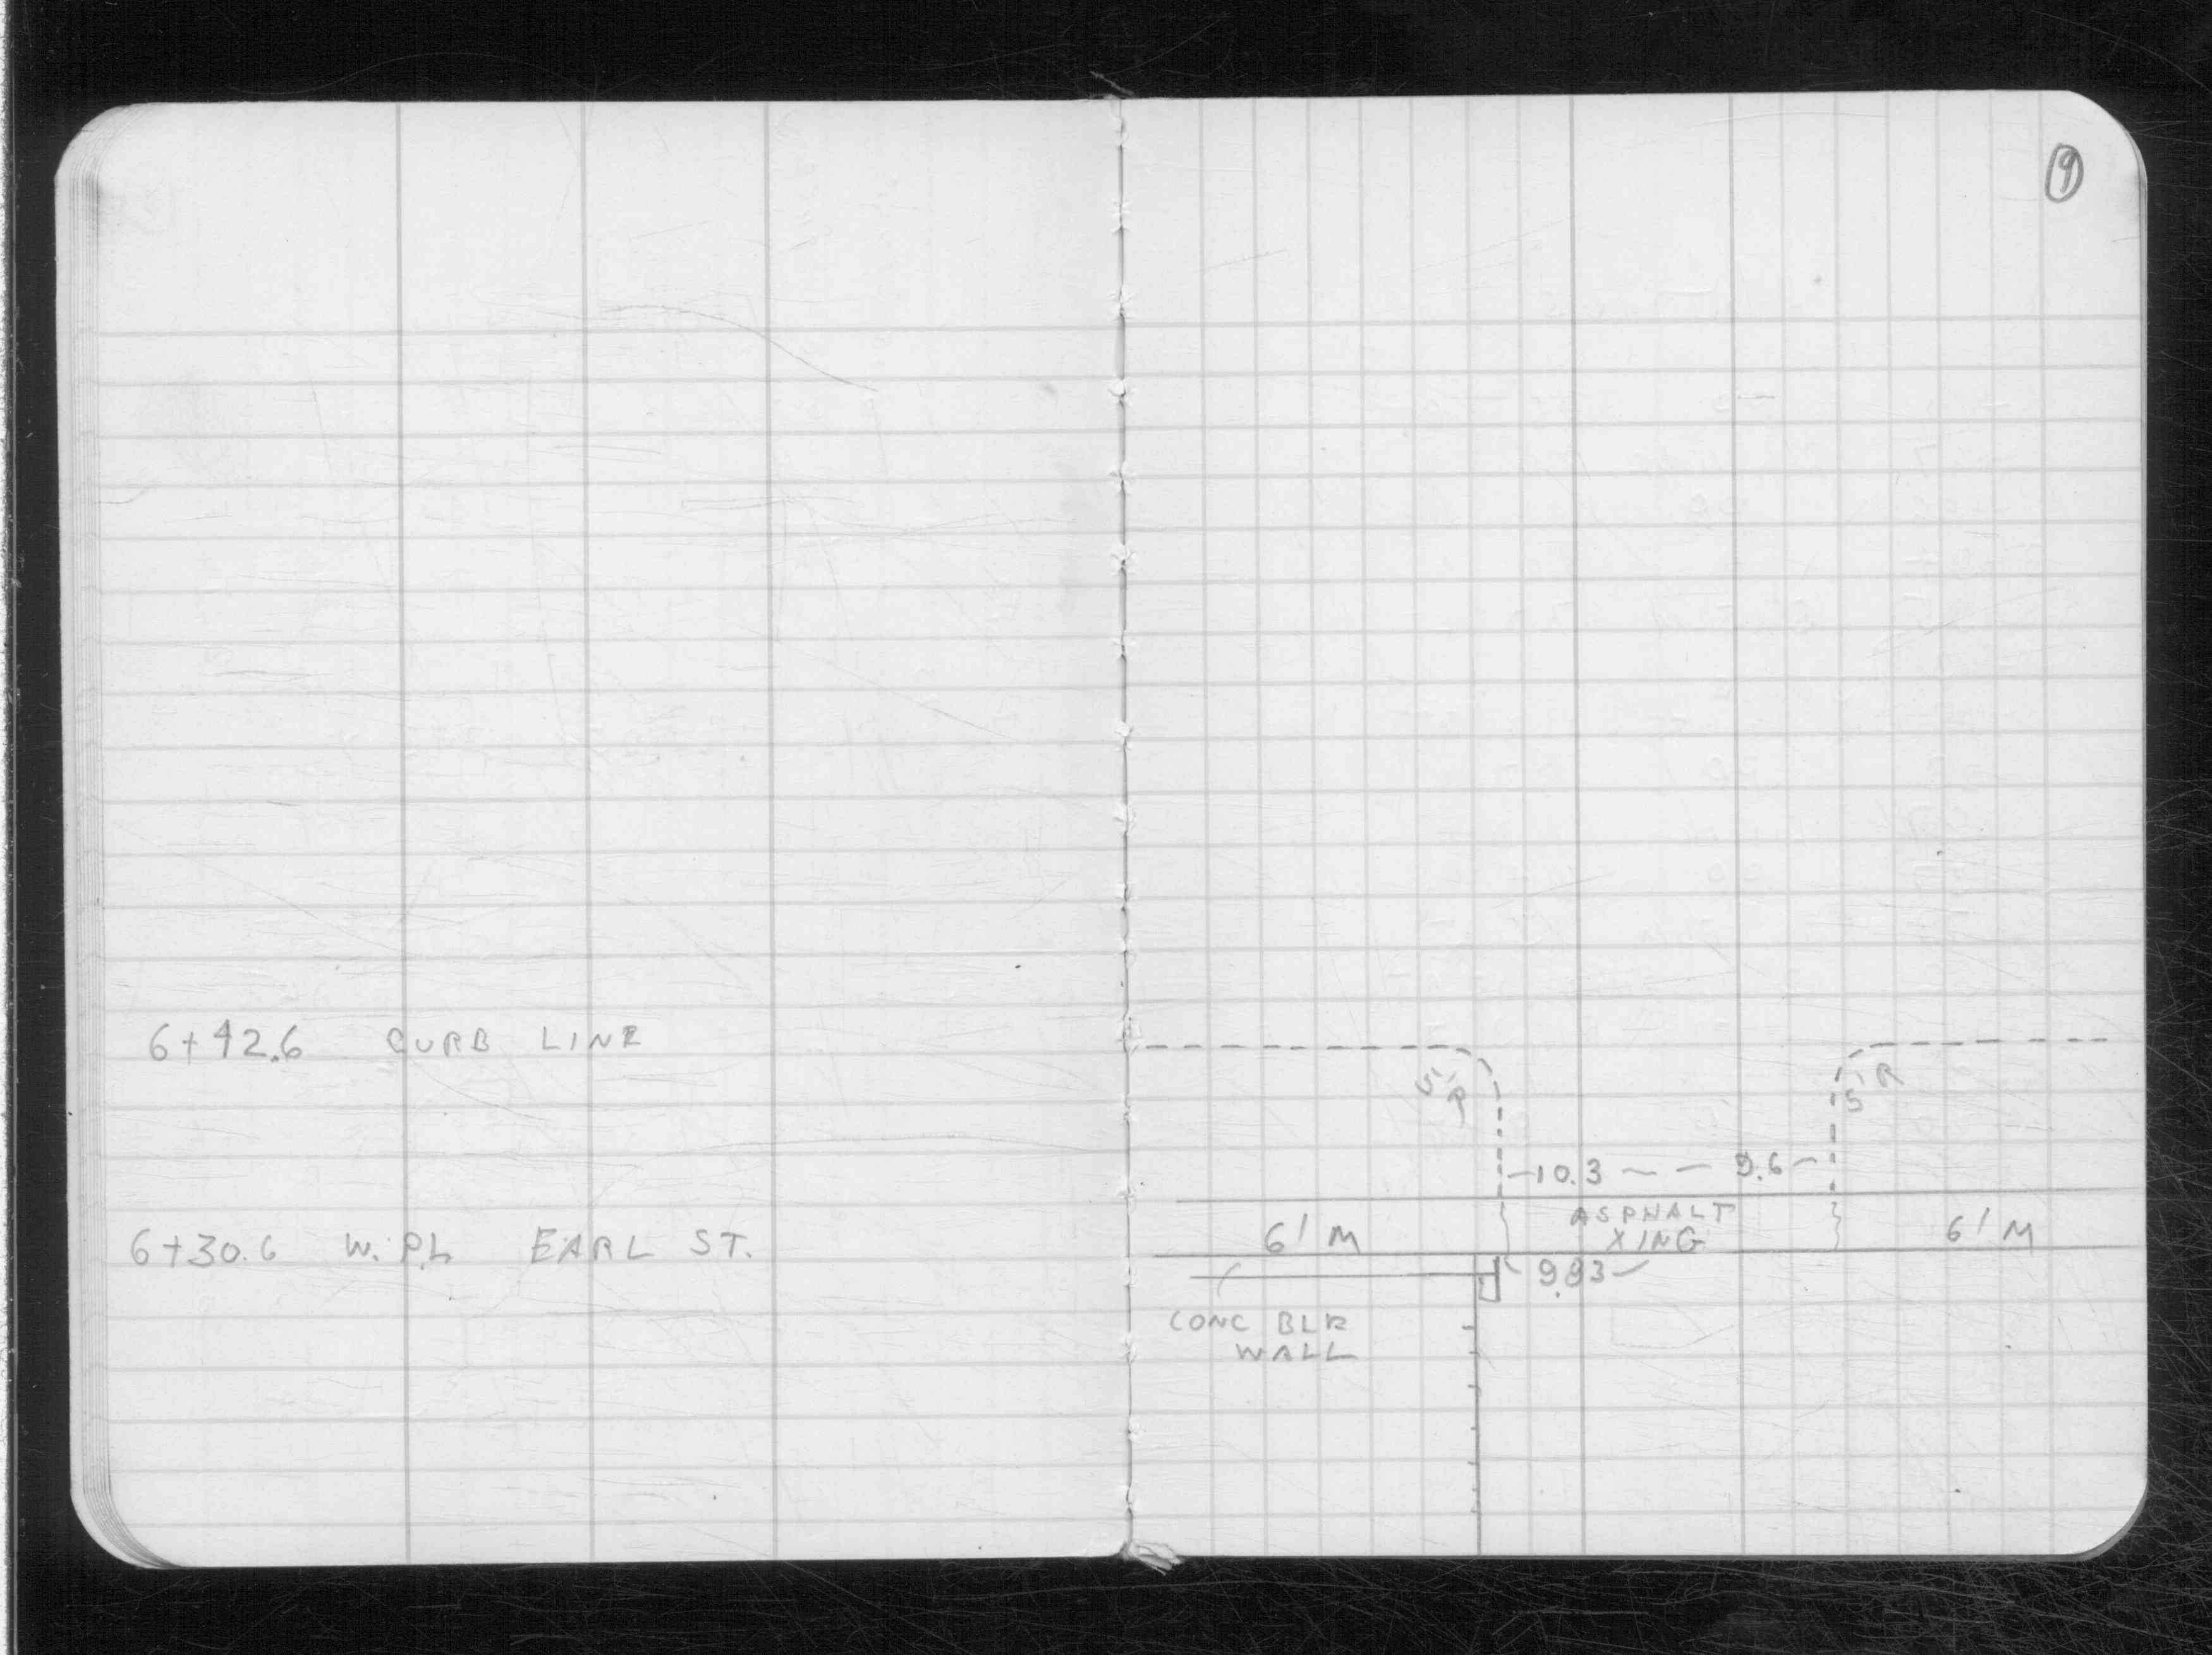 9
6+42.6 CURB LINE
5' R
5' R
10.3 — — 9.6
ASPHALT
6' M XING 6' M
6+30.6 W. P.L EARL ST.
9.83
CONC BLK
WALL